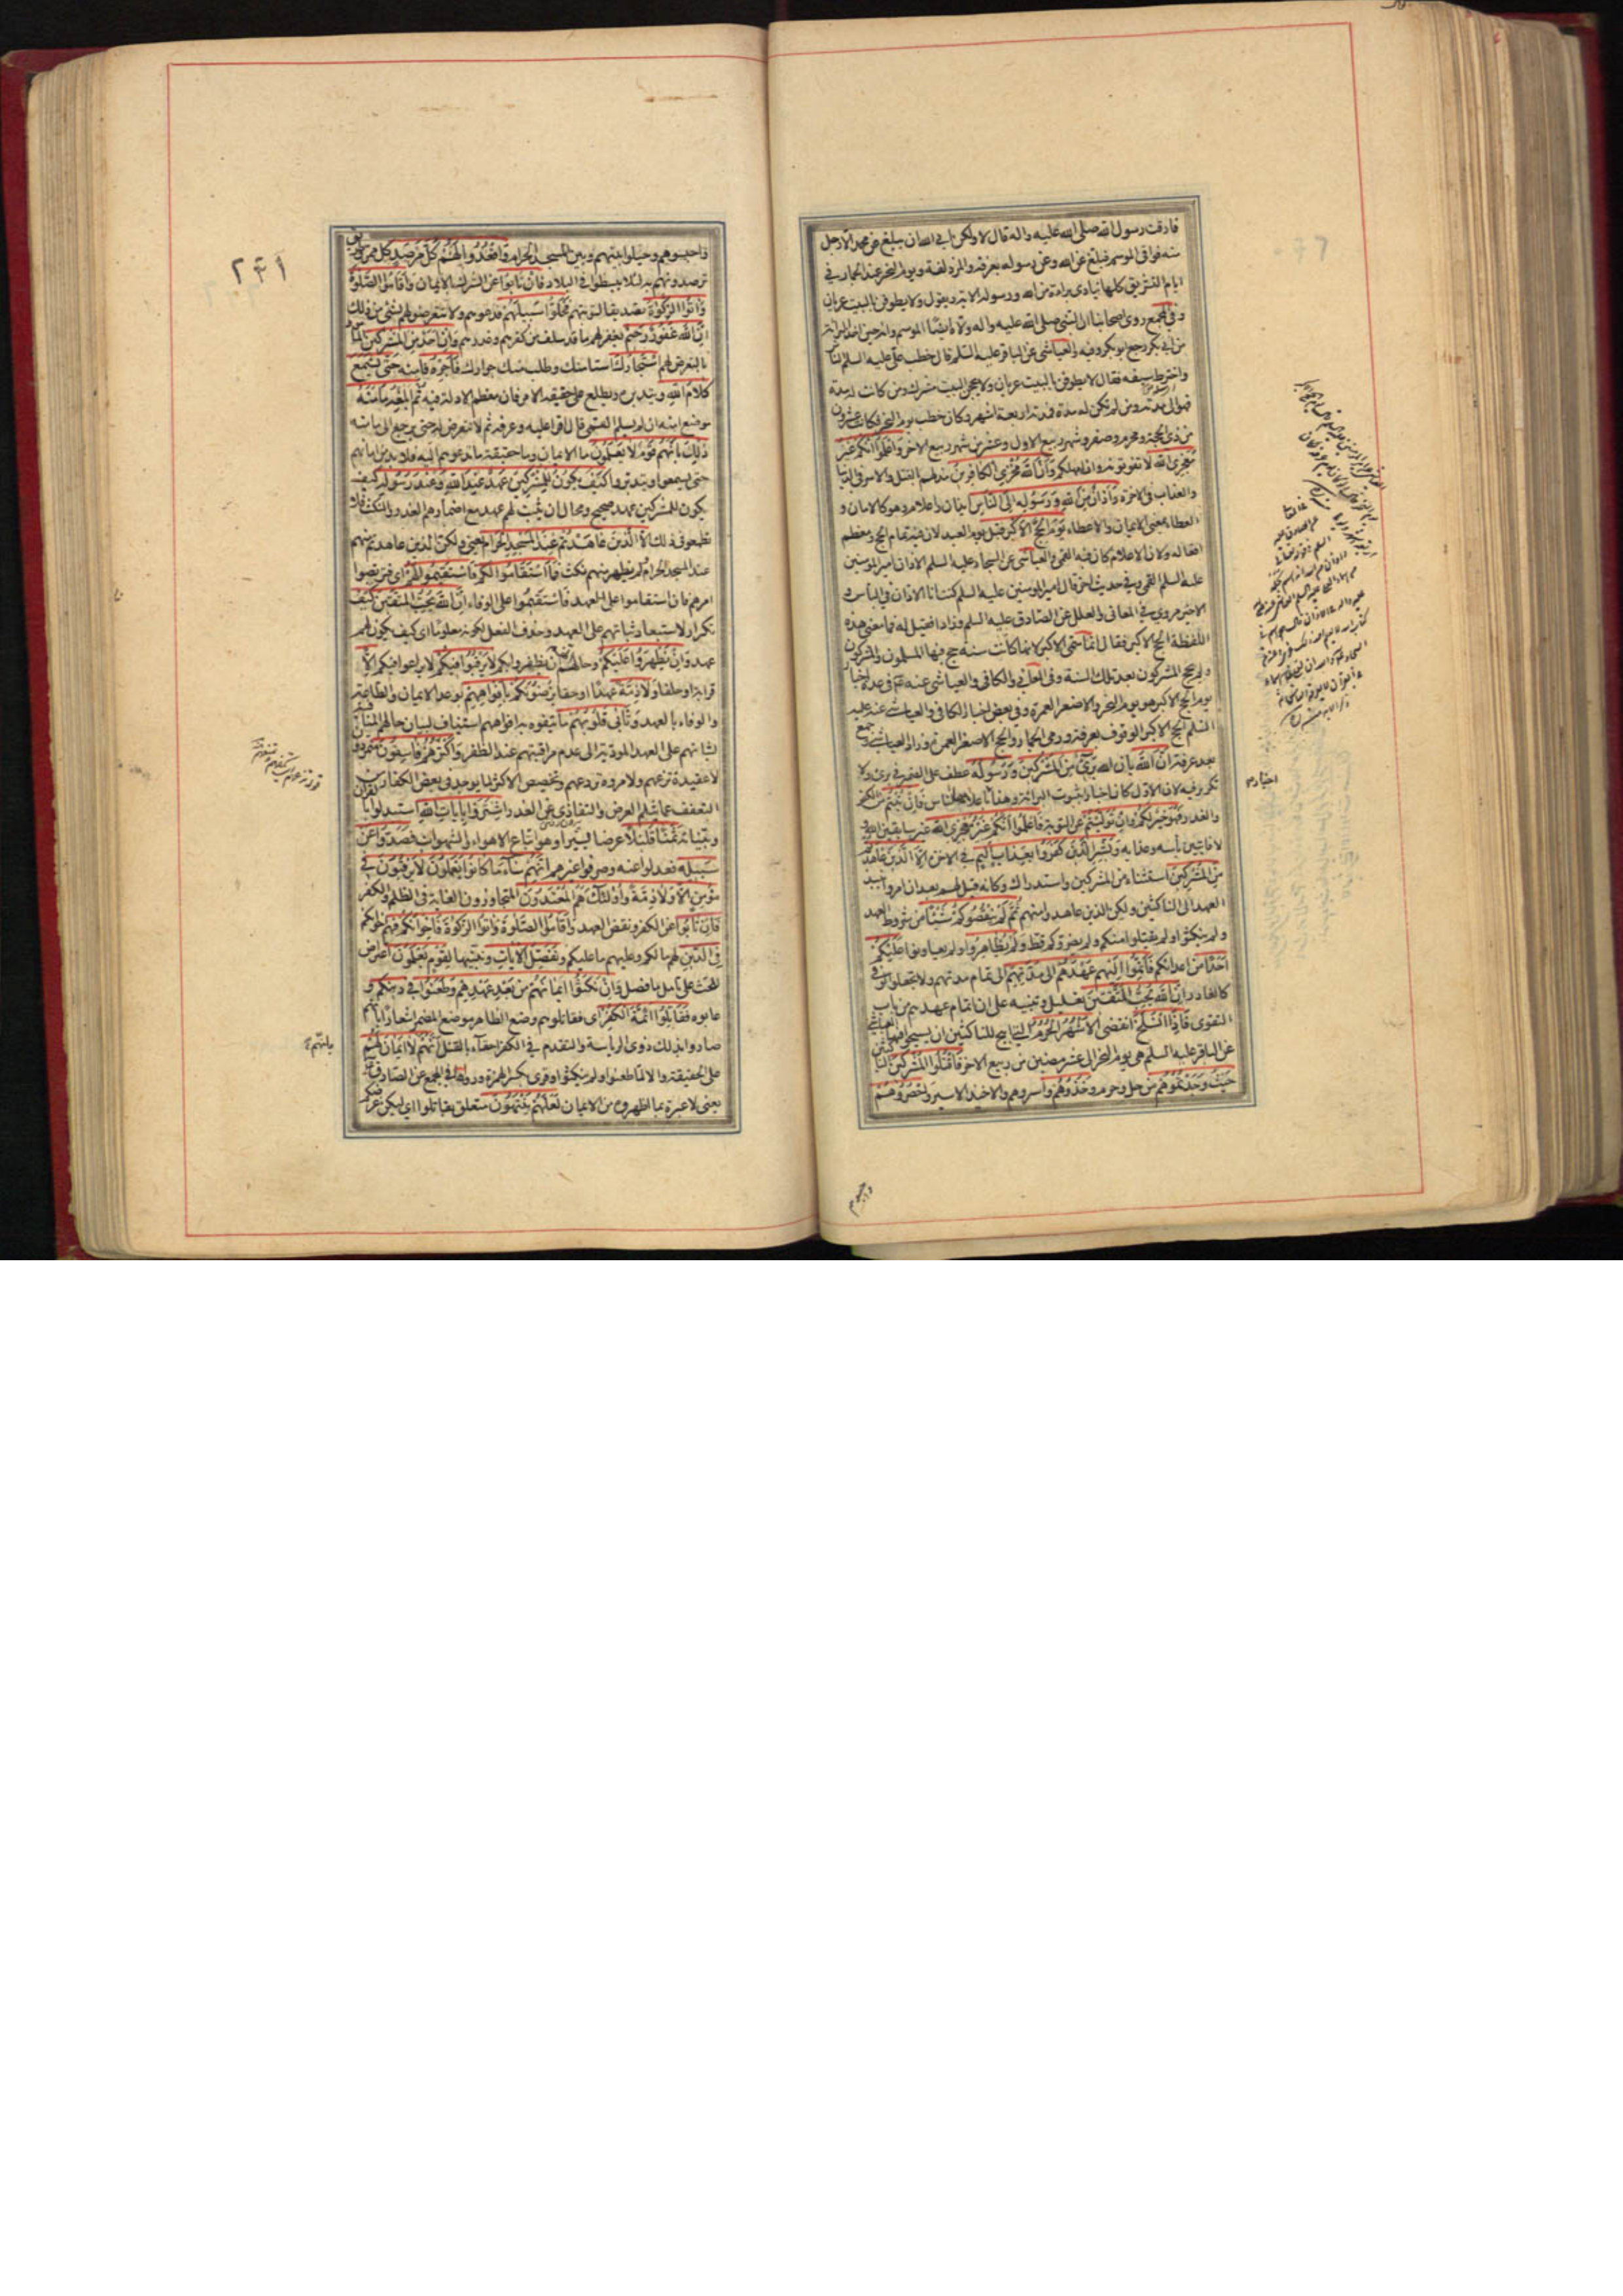 فارقت رسول الله صلى الله عليه واله قال لا ولكن ابى ان يبلغ عن محمد الا رجل
منه فوافى الموسم فبلغ عن الله وعن رسوله بعرفة والمزدلفة ويوم النحر عند الجمار وفى
ايام التشريق كلها ينادى براءة من الله ورسوله الاية ويقول ولا يطوفن بالبيت عريان
وفى المجمع روى اصحابنا ان النبى صلى الله عليه واله ولاه ايضا الموسم وانه حين اخذ البراءة
من ابى بكر رجع ابو بكر وفيه والعياشى عن الباقر عليه السلم قال خطب على عليه السلم الناس
واخترط سيفه فقال لا يطوفن بالبيت عريان ولا يحجن البيت مشرك ومن كانت له مدة
فهو الى مدته ومن لم تكن له مدة فمدته اربعة اشهر وكان خطب يوم النحر فكانت عشرون
من ذى الحجة ومحرم وصفر وشهر ربيع الاول وعشر من شهر ربيع الاخر واعلموا انكم غير
معجزى الله لا تفوتونه وان امهلكم وان الله مخزى الكافرين مذلهم بالقتل والاسر فى الدنيا
والعذاب فى الاخرة واذان من الله ورسوله الى الناس ايذان واعلام وهو كالامان و
العطاء بمعنى الايمان والاعطاء يوم الحج الاكبر قيل يوم العيد لان فيه تمام الحج ومعظم
افعاله ولان الاعلام كان فيه القمى والعياشى عن السجاد عليه السلم الاذان امير المومنين
عليه السلم القمى وفى حديث اخر قال امير المومنين عليه السلم كنت انا الاذان فى الناس و
الاخير مروى فى المعانى والعلل عن الصادق عليه السلم وزاد فقيل له فما معنى هذه
اللفظة الحج الاكبر فقال انما سمى الاكبر لانها كانت سنة حج فيها المسلمون والمشركون
ولم يحج المشركون بعد تلك السنة وفى العلل والكافى والعياشى عنه فى عدة اخبار
يوم الحج الاكبر هو يوم النحر والاصغر العمرة وفى بعض اخبار الكافى والعياشى عنه عليه
السلم الحج الاكبر الوقوف بعرفة ورمى الجمار والحج الاصغر العمرة وزاد العياشى وجمع
بعد عرفة ان الله بان الله برىء من المشركين ورسوله عطف على الضمير فى برىء ولا
تكرير فيه لان الاول كان اخبارا بثبوت البراءة وهذا باعلامها الناس فان تبتم من الكفر
والغدر فهو خير لكم وان توليتم عن التوبة فاعلموا انكم غير معجزى الله غير سابقين الله و
لا فائتين بأسه وعذابه وبشر الذين كفروا بعذاب اليم فى الاخرة الا الذين عاهدتم
من المشركين استثناء من المشركين واستدراك وكانه قيل لهم بعد ان امروا بنبذ
العهد الى الناكثين ولكن الذين عاهدوا منهم ثم لم ينقصوكم شيئا من شروط العهد
ولم ينكثوا ولم يقتلوا منكم ولم يضروكم قط ولم يظاهروا ولم يعاونوا عليكم
احدا من اعدائكم فاتموا اليهم عهدهم الى مدتهم الى تمام مدتهم ولا تجعلوا الوفى
كالغادر ان الله يحب المتقين تعليل وتنبيه على ان اتمام عهدهم من باب
التقوى فاذا انسلخ انقضى الاشهر الحرم التى ابيح للناكثين ان يسيحوا فيها العياشى
عن الباقر عليه السلم هى يوم النحر الى عشر مضين من ربيع الاخر فاقتلوا المشركين الناكثين
حيث وجدتموهم من حل وحرم وخذوهم واسروهم والاخيذ الاسير واحصروهم
اخبار م
واحبسوهم
٢٤١
واحبسوهم وحيلوا بينهم وبين المسجد الحرام واقعدوا لهم كل مرصد كل ممر وطريق
ترصدونهم به لئلا يبسطوا فى البلاد فان تابوا عن الشرك بالايمان واقاموا الصلوة
واتوا الزكوة تصديقا لتوبتهم فخلوا سبيلهم فدعوهم ولا تتعرضوا لهم بشىء من ذلك
ان الله غفور رحيم يغفر لهم ما قد سلف من كفرهم وغدرهم وان احد من المشركين المأمور
بالتعرض لهم استجارك استامنك وطلب منك جوارك فاجره فامنه حتى يسمع
كلام الله ويتدبره ويطلع على حقيقة الامر فان معظم الادلة فيه ثم ابلغه مأمنه
موضع امنه ان لم يسلم القمى قال اقرا عليه وعرفه ثم لا تتعرض له حتى يرجع الى مامنه
ذلك بانهم قوم لا يعلمون ما الايمان وما حقيقة ما تدعوهم اليه فلا بد من امانهم
حتى يسمعوا ويتدبروا كيف يكون للمشركين عهد عند الله وعند رسوله كيف
يكون للمشركين عهد صحيح ومحال ان يثبت لهم عهد مع اضمارهم الغدر والنكث فلا
تطمعوا فى ذلك الا الذين عاهدتم عند المسجد الحرام يعنى ولكن الذين عاهدتم منهم
عند المسجد الحرام لم يظهر منهم نكث فما استقاموا لكم فاستقيموا لهم اى فتربصوا
امرهم فان استقاموا على العهد فاستقيموا على الوفاء ان الله يحب المتقين كيف
تكرار لاستبعاد ثباتهم على العهد وحذف الفعل لكونه معلوما اى كيف يكون لهم
عهد وان يظهروا عليكم وحالهم انهم ان يظفروا بكم لا يرقبوا فيكم لا يراعوا فيكم الا
قرابة او حلفا ولا ذمة عهدا او حقا يرضونكم بافواههم بوعد الايمان والطاعة
والوفاء بالعهد وتابى قلوبهم ما يتفوه به افواههم استيناف لبيان حالهم المنافية
لثباتهم على العهد المودية الى عدم مراقبتهم عند الظفر واكثرهم فاسقون متمردون
لا عقيدة تزعهم ولا مروة تردعهم وتخصيص الاكثر لما يوجد فى بعض الكفار من
التعفف عما يثلم العرض والتفادى عن الغدر اشتروا بايات الله استبدلوا بالقران
وبيناته ثمنا قليلا عرضا يسيرا وهو اتباع الاهواء والشهوات فصدوا عن
سبيله فعدلوا عنه وصرفوا غيرهم انهم ساء ما كانوا يعملون لا يرقبون فى
مؤمن الا ولا ذمة واولئك هم المعتدون المتجاوزون الغاية فى الظلم والكفر
فان تابوا عن الكفر ونقض العهد واقاموا الصلوة واتوا الزكوة فاخوانكم فهم اخوانكم
فى الدين لهم ما لكم وعليهم ما عليكم ونفصل الايات ونبينها لقوم يعلمون اعتراض
للحث على تامل ما فصل وان نكثوا ايمانهم من بعد عهدهم وطعنوا فى دينكم و
عابوه فقاتلوا ائمة الكفر اى فقاتلوهم وضع الظاهر موضع المضمر اشعارا بانهم
صاروا بذلك ذوى الرياسة والتقدم فى الكفر احقاء بالقتل انهم لا ايمان لهم
على الحقيقة والا لما طعنوا ولم ينكثوا وقرى بكسر الهمزة ورواها فى المجمع عن الصادق
يعنى لا عبرة بما اظهروه من الايمان لعلهم ينتهون متعلق بقاتلوا اى ليكن غرضكم